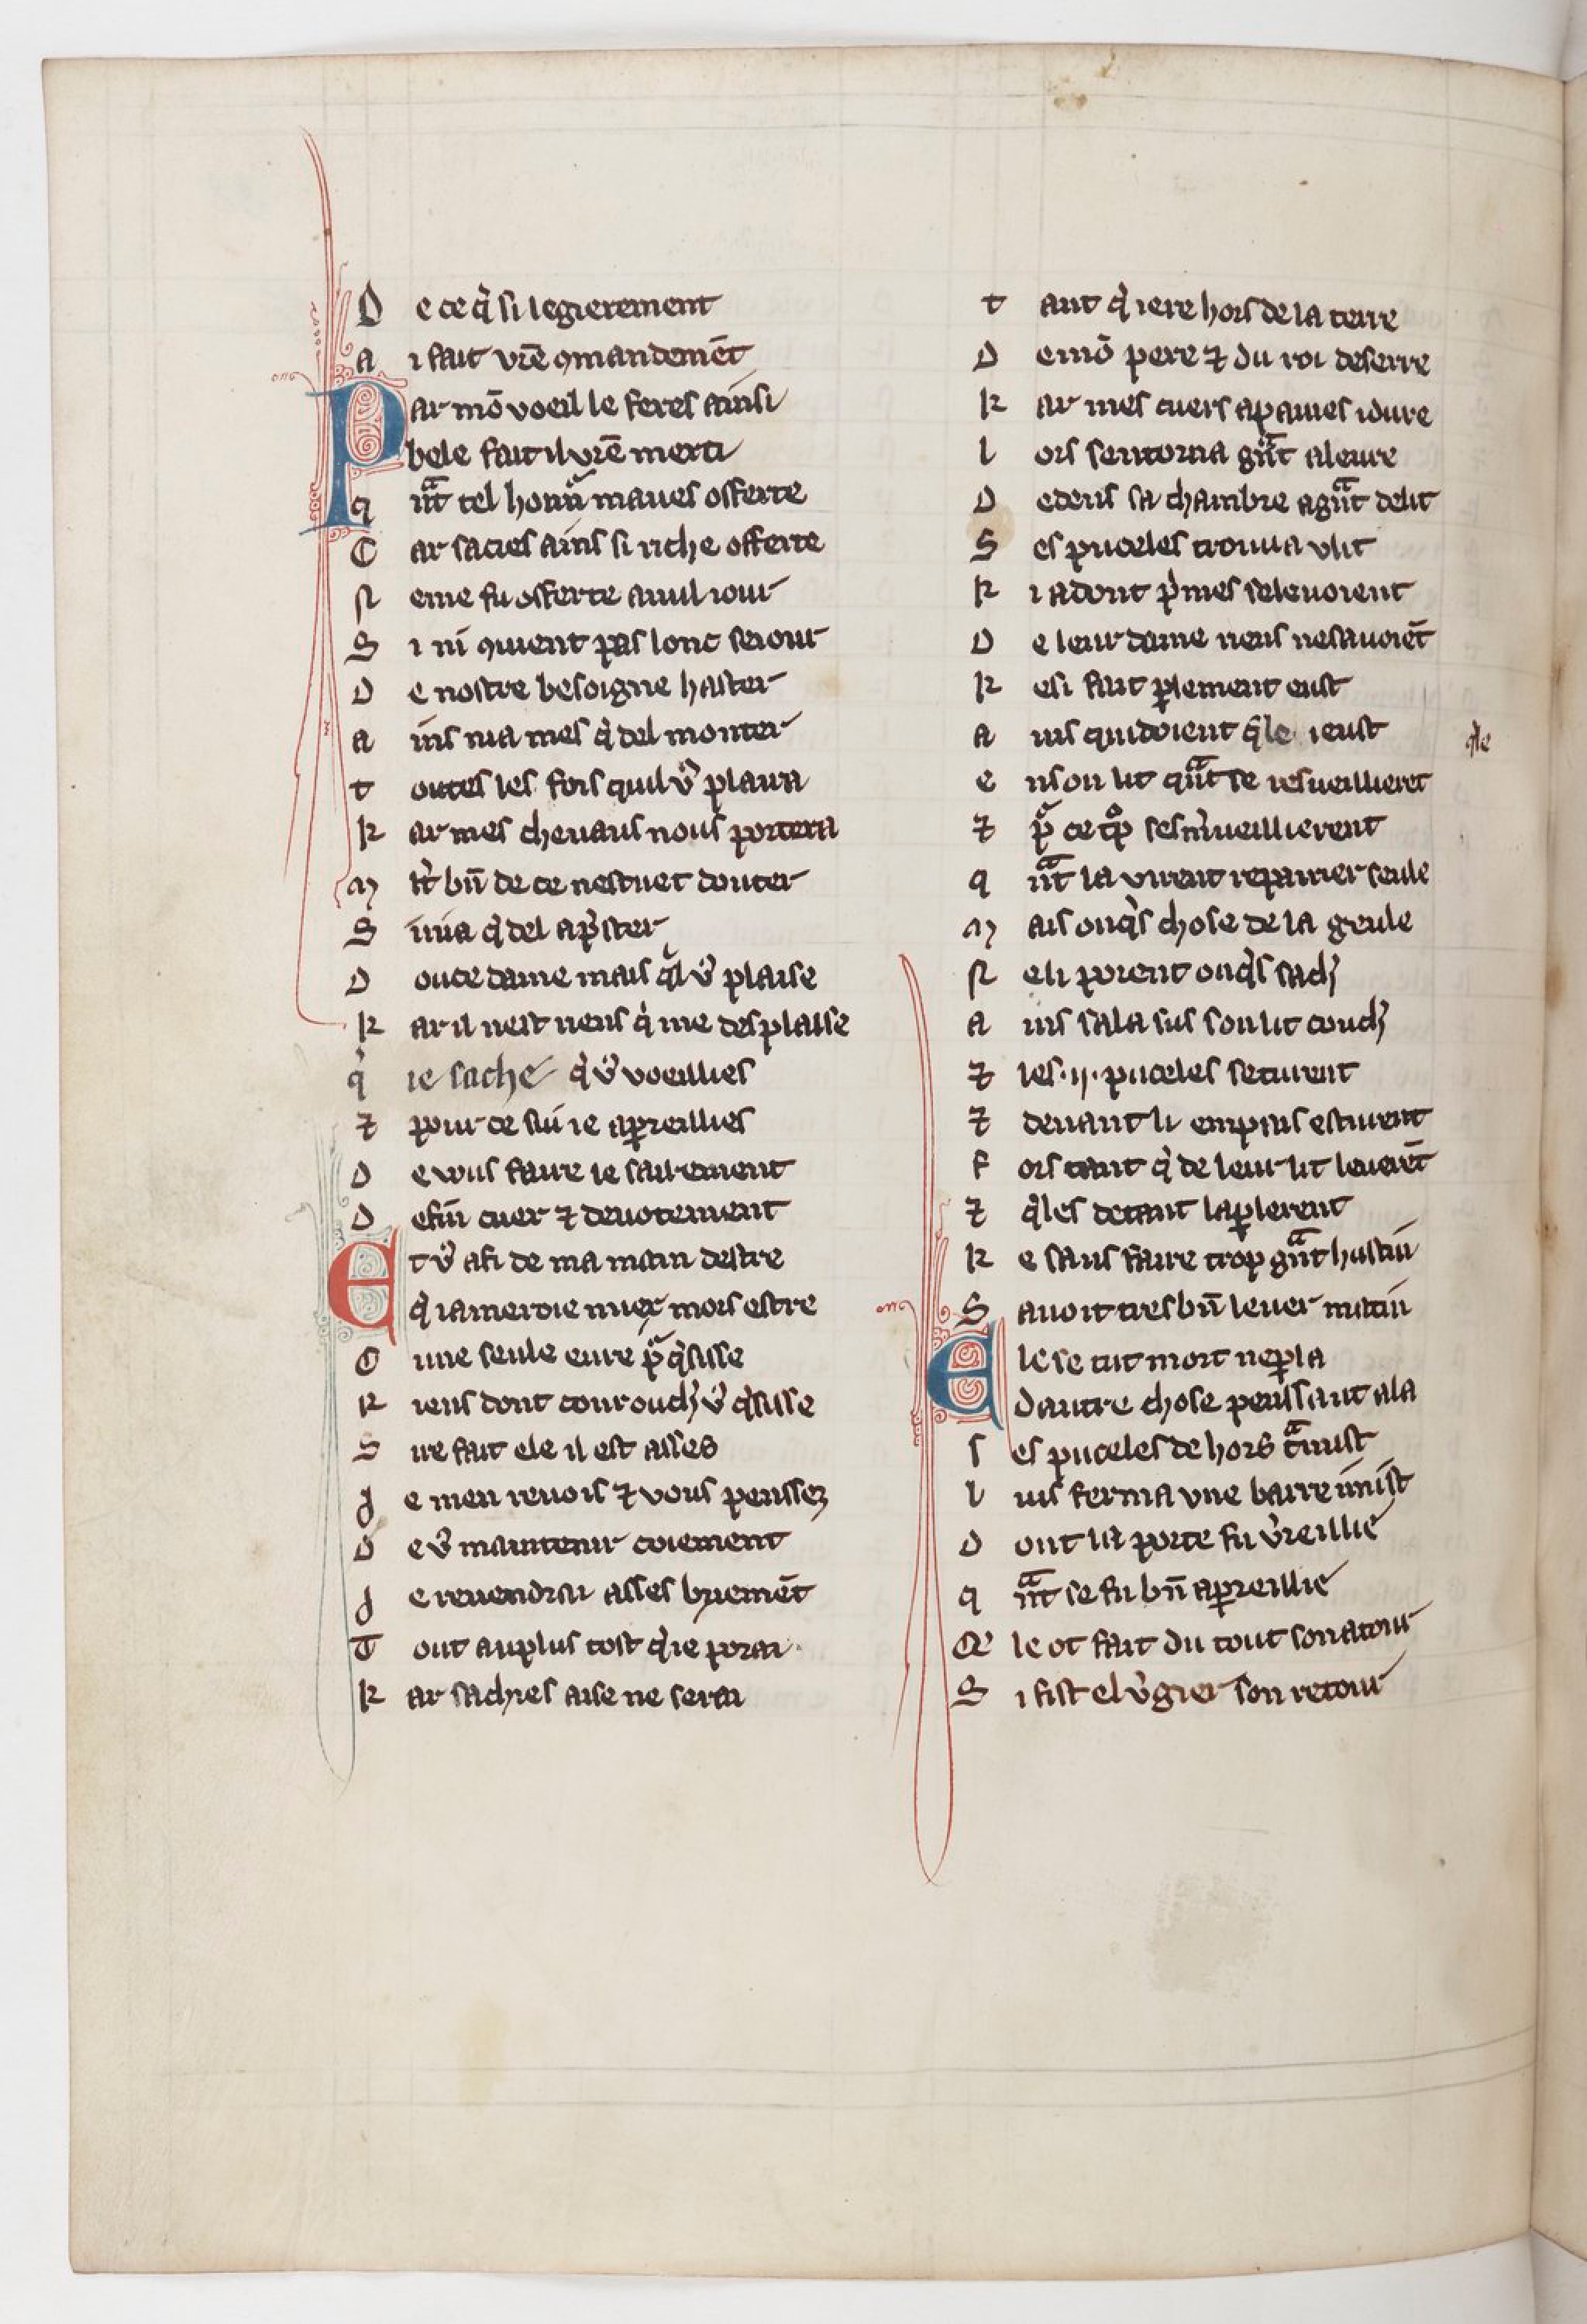 De ce q̇ si legierement
ai fait vr̄e ꝯmandemēt
Par mō voeil le feres ainsi
bele fait il vr̄e merci
qͣnt tel honnͬ maues offerte
Car sacies ains si riche offerte
Ne me fu offerte a nul iour
Si ni ꝯuient pas lonc seiour
De nostre besoigne haster
ains nia mes q̇ del monter
toutes les fois quil v̾ plaira
Kar mes cheuaus nous portera
bn̄ de ce nestuet douter
Sinia q̇ del ap̾ster
Douce dame mais v̾ plaise
Kar il nest riens q̇ me desplaise
q̇ ie sache q̇ v̾ voeillies
⁊ pour ce sui ie aꝑreillies
De vous faire le sairement
De fin cuer ⁊ deuotement
Et v̾ afi de ma main destre
q̇ iameroie miex mors estre
une seule eure q̇sisse
Riens dont v̾ q̇sisse
Sire fait ele il est asses
Je men reuois ⁊ vous penssez
De v̾ maintenir coiement
Je reuendrai asses briemēt
Tout au plus tost q̇ ie porai
Kar sachies aise ne serai
tant q̇ iere hors de la terre
De mō pere ⁊ du roi deserre
Kar mes cuers a pames idure
lors sentorna gͣnt aleure
Dedens sa chambre a gͣnt delit
Ses puceles trouua v lit
Ki adont p̾mes se leuoient
De leur dame riens ne sauoiēt
Ke si fait ꝑlement eust
ains quidoient q̄le ieust
en son lit qͣnt se resueillierēt
⁊ pͬ ce ses m̾ueillierent
qͣnt la virent repairier seule
Mais onq̾s chose de la geule
Ne li porent onq̾s sachͥ
ains sala sus son lit couchͥ
⁊ les .ij. puceles se turent
⁊ deuant li empius esturent
fors tant q̇ de leur lit leuerēt
⁊ q̄les detant laꝑlerent
Ke sans faire trop gͣnt hustin
Sauoit tres bn̄ leuer matin
Ele se tut mot ne ꝑla
Dautre chose penssant ala
ses puceles de hors tͣmist
luis ferma vne barre i mist
Dont la porte fu v̾reillie
qͣnt se fu bn̄ aꝑreillie
Ele ot fait du tout son atour
Si fist el v̾gier son retour
q̄le